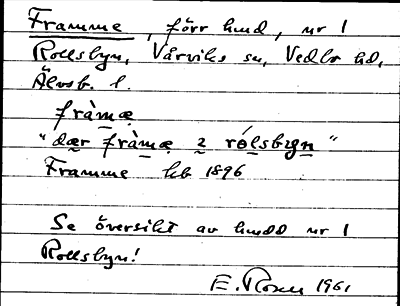 Framme, förr hmd, nr 1
Rollsbyn, Vårviks sn, Vedbo hd,
Älvsb. l.
fràmæ
"dær fràmæ 2 rólsbyn"
Framme kb 1896
Se översikt av hmdd nr 1
Rollsbyn!
E. Rosen 1961